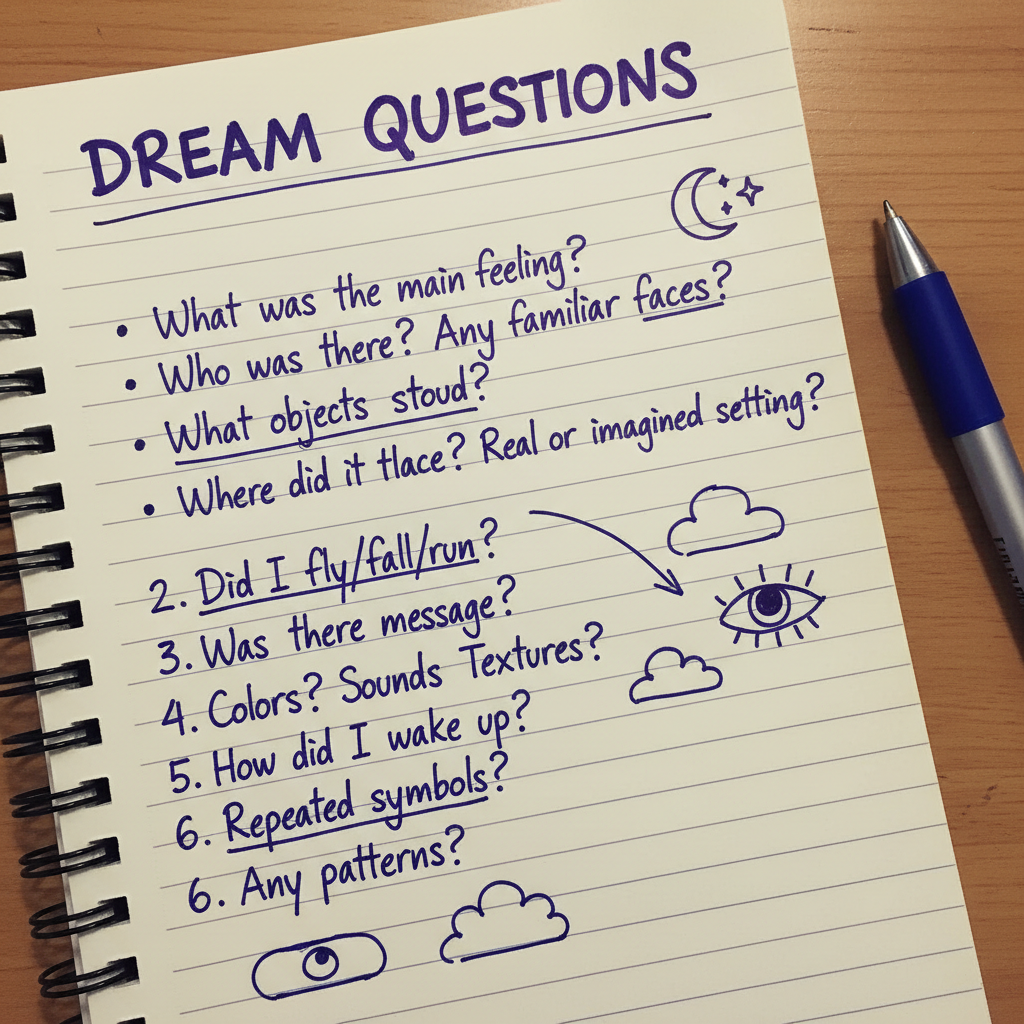 DREAM QUESTIONS
• What was the main feeling?
• Who was there? Any familiar faces?
• What objects stoud?
• Where did it tlace? Real or imagined setting?
2. Did I fly/fall/run?
3. Was there message?
4. Colors? Sounds Textures?
5. How did I wake up?
6. Repeated symbols?
6. Any patterns?